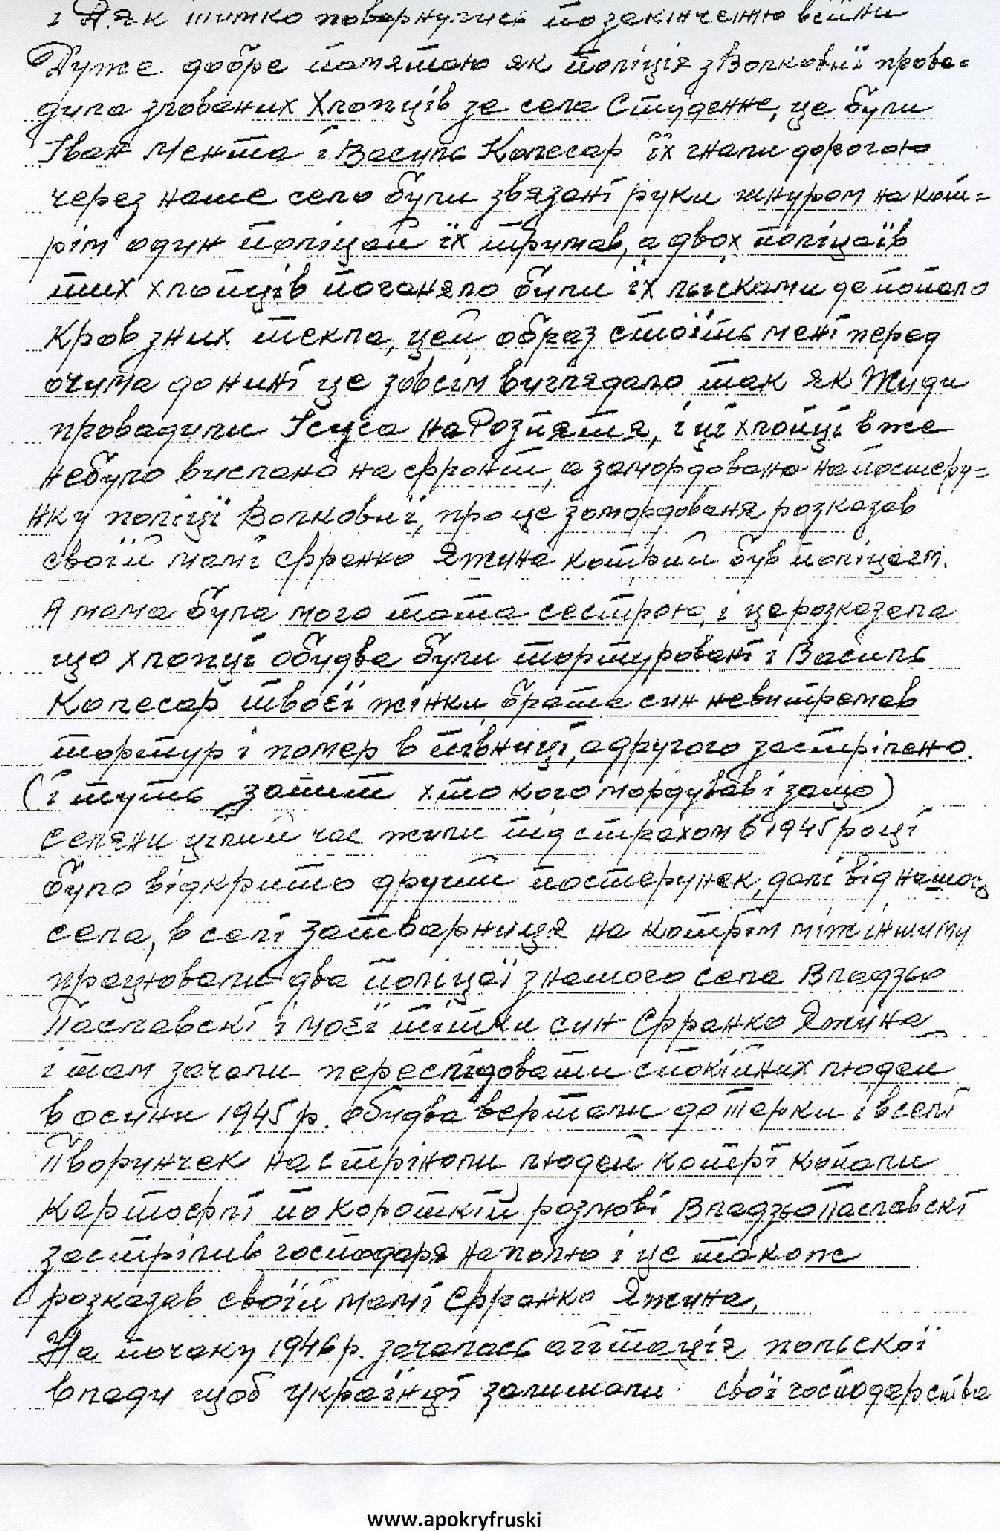 і Я. як тилко повернулись по закінченню війни
Дуже добре памятаю як поліція з Волковиї прова-
дила зловених Хлопців зе села Студенне, це були
Іван Мента і Василь Колесар їх гнали дорогою
через наше село були звязані руки шнуром на кот-
рім один поліцай їх тримав, а двох поліцаїв
тих хлопців поганяло били їх пысками де попало
Кров зних текла, цей образ стоїть мені перед
очима до нині це зовсім виглядало так як Жиди
провадили Ісуса на Розпяття, і ці хлопці вже
небуло вислано на фронт, а замордовано на постеру-
нку поліції Волковиї, про це замордованя розказав
своїй мамі Франко Яжина котрий був поліцаєм.
А мама була мого тата сестрою, і це розказала
що хлопці обидва були тортуровані і Василь
Колесар твоєї жінки брата син невитремав
тортур і помер в півниці, а другого застрілено.
(і туть запит хто кого мордував і защо)
селяни цілий час жили під страхом в 1945 році
було відкрито другий постерунек, далі від нашого
села, в селі Затварниця на котрім між іншими
працювали два поліцаї з нашого села Владзьо
Паславскі і моєї тітки син Франко Яжина
і там зачали переслідовати спокійних людей
в осини 1945 р. обидва вертали до Терки і в селі
Творильчек настрінули людей котрі копали
картофлі по короткій розмові Владзьо Паславскі
застрілив господаря на полю і це також
розказав своїй мамі Франко Яжина.
На почаку 1946 р. зачалась агітація польскої
влади щоб Українці залишали свої господарства
www.apokryfruski